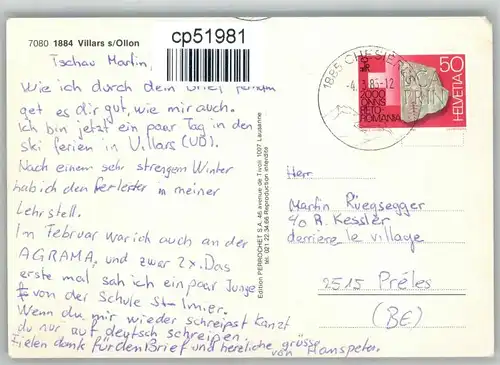 7080 1884 Villars s/Ollon
cp51981
Tschau Martin,
Wie ich durch dein Brief
get es dir gut, wie mir auch.
Ich bin jetzt ein paar Tag in den
ski ferien in Villars (VD).
Nach einem sehr strengem Winter
hab ich den in meiner
Lehrstell.
Im Februar war ich auch an der
AGRAMA, und zwar 2x. Das
erste mal sah ich ein paar Junge
von der Schule St-Imier.
Wenn du mir wieder schreipst kanzt
du nur auf deutsch schreipen.
Fielen dank für den Brief und herzliche grüsse
von Hanspeter.
Edition PERROCHET S.A. 46 avenue de Tivoli 1007 Lausanne
tél. 021.22.34.66 Reproduction interdite
1885 CHESIERES
-4.3.85-12
50
HELVETIA
2000
ONNS
RETO-
ROMANIA
Herr
Martin Rüegsegger
c/o R. Kessler
derrière le village
2515 Prèles
(BE)